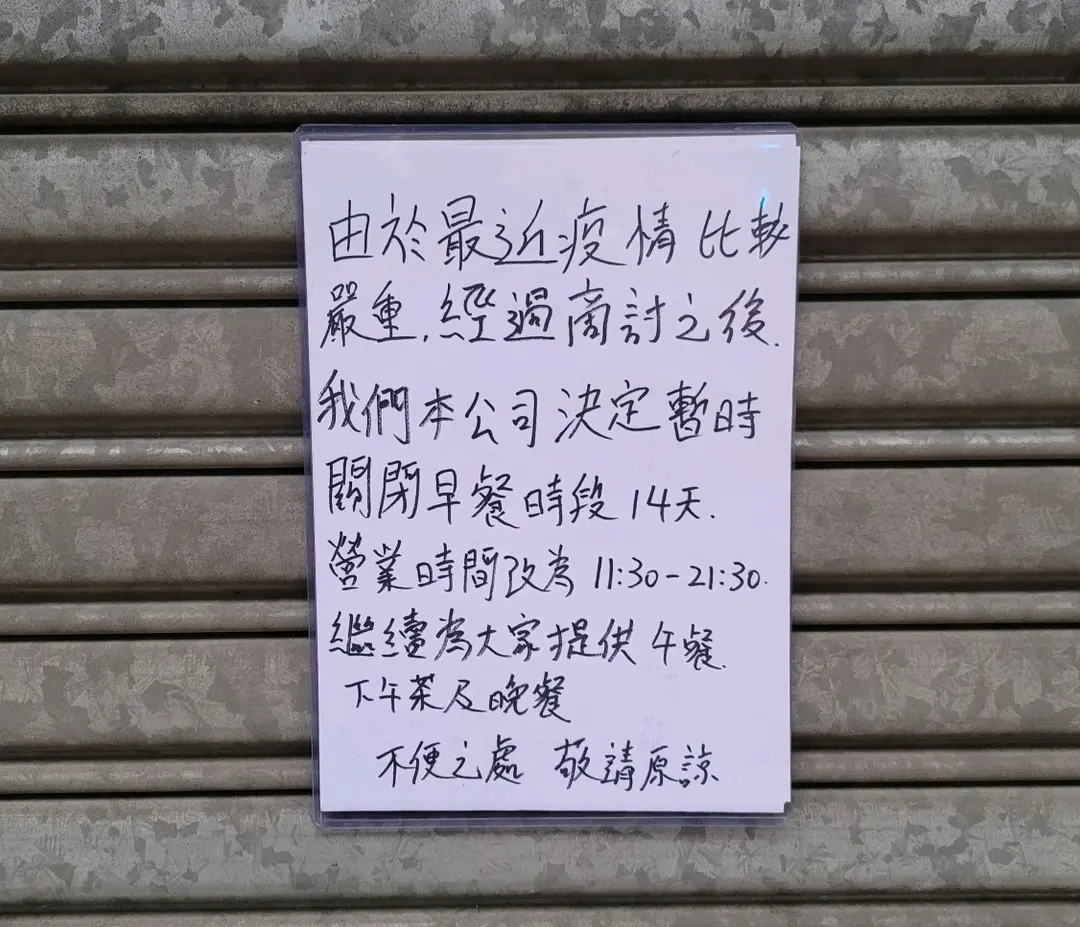 由於最近疫情比較
嚴重,經過商討之後.
我們本公司決定暫時
關閉早餐時段14天.
營業時間改為11:30-21:30.
繼續為大家提供午餐.
下午茶及晚餐
不便之處 敬請原諒